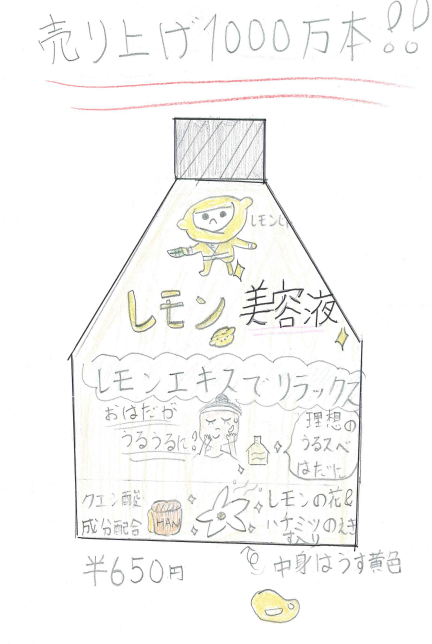 売り上げ1000万本!!
レモン
美容液
レモンエキスでリラックス
おはだが
うるうるに?
理想の
うるスベ
はだに
クエン酸
成分配合
HAN
レモンの花&
ハチミツのえき
す入り
半650円
中身はうす黄色